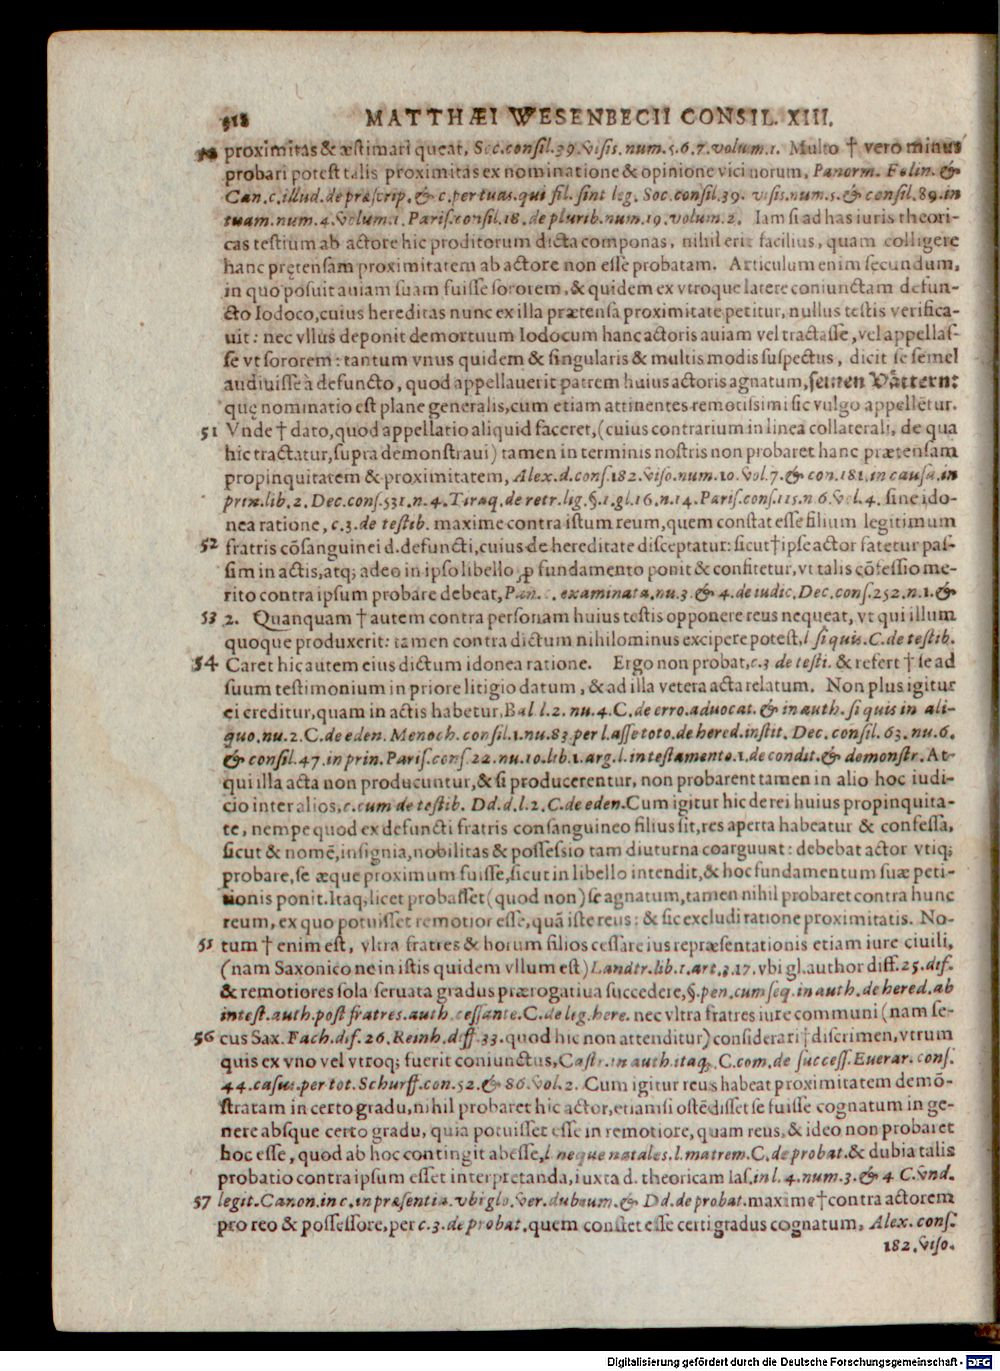 518 MATTHÆI WESENBECII CONSIL. XIII.
50 proximitas & æstimari queat, Soc. consil. 39. visis. num. 5. 6. 7. volum. 1. Multo † vero minus
probari potest talis proximitas ex nominatione & opinione vicinorum, Panorm. Felin. &
Can. c. illud. de præscrip. & c. per tuas. qui fil. sint leg. Soc. consil. 39. visis. num. 5. & consil. 89. in
tuam. num. 4. volum. 1. Paris. consil. 18. de plurib. num. 19. volum. 2. Iam si ad has iuris theori-
cas testium ab actore hic proditorum dicta componas, nihil erit facilius, quam colligere
hanc prętensam proximitatem ab actore non esse probatam. Articulum enim secundum,
in quo posuit auiam suam fuisse sororem, & quidem ex vtroque latere coniunctam defun-
cto Iodoco, cuius hereditas nunc ex illa prætensa proximitate petitur, nullus testis verifica-
uit: nec vllus deponit demortuum Iodocum hanc actoris auiam vel tractasse, vel appellas-
se vt sororem: tantum vnus quidem & singularis & multis modis suspectus, dicit se semel
audiuisse à defuncto, quod appellauerit patrem huius actoris agnatum, seinen Våttern:
quę nominatio est plane generalis, cum etiam attinentes remotissimi sic vulgo appellētur.
51 Vnde † dato, quod appellatio aliquid faceret, (cuius contrarium in linea collaterali, de qua
hic tractatur, supra demonstraui) tamen in terminis nostris non probaret hanc prætensam
propinquitatem & proximitatem, Alex. d. cons. 182. viso. num. 10. vol. 7. & con. 181. in causa. in
prin. lib. 2. Dec. cons. 531. n. 4. Tiraq. de retr. lig. §. 1. gl. 16. n. 14. Paris. cons. 115. n 6. vol. 4. sine ido-
nea ratione, c. 3. de testib. maxime contra istum reum, quem constat esse filium legitimum
52 fratris cōsanguinei d. defuncti, cuius de hereditate disceptatur: sicut † ipse actor fatetur pas-
sim in actis, atq; adeo in ipso libello ꝓ fundamento ponit & confitetur, vt talis cōfessio me-
rito contra ipsum probare debeat, Pan. c. examinata. nu. 3. & 4. de iudic. Dec. cons. 252. n. 1. &
53 2. Quanquam † autem contra personam huius testis opponere reus nequeat, vt qui illum
quoque produxerit: tamen contra dictum nihilominus excipere potest, l si quis. C. de testib.
54 Caret hic autem eius dictum idonea ratione. Ergo non probat, c. 3 de testi. & refert † se ad
suum testimonium in priore litigio datum, & ad illa vetera acta relatum. Non plus igitur
ei creditur, quam in actis habetur, Bal l. 2. nu. 4. C. de erro. aduocat. & in auth. si quis in ali-
quo. nu. 2. C. de eden. Menoch. consil. 1. nu. 83. per l. asse toto. de hered. instit. Dec. consil. 63. nu. 6.
& consil. 47. in prin. Paris. cons. 22. nu. 10. lib. 1. arg. l. in testamento. 1. de condit. & demonstr. At-
qui illa acta non producuntur, & si producerentur, non probarent tamen in alio hoc iudi-
cio inter alios, c. cum de testib. Dd. d. l. 2. C. de eden. Cum igitur hic de rei huius propinquita-
te, nempe quod ex defuncti fratris consanguineo filius sit, res aperta habeatur & confessa,
sicut & nomē, insignia, nobilitas & possessio tam diuturna coarguunt: debebat actor vtiq;
probare, se æque proximum fuisse, sicut in libello intendit, & hoc fundamentum suæ peti-
tionis ponit. Itaq; licet probasset (quod non) se agnatum, tamen nihil probaret contra hunc
reum, ex quo potuisset remotior esse, quā iste reus: & sic excludi ratione proximitatis. No-
55 tum † enim est, vltra fratres & horum filios cessare ius repræsentationis etiam iure ciuili,
(nam Saxonico ne in istis quidem vllum est) Landtr. lib. 1. art. 3. 17. vbi gl. author diff. 25. dif.
& remotiores sola seruata gradus prærogatiua succedere, §. pen. cum seq. in auth. de hered. ab
intest. auth. post fratres. auth. cessante. C. de leg. here. nec vltra fratres iure communi (nam se-
56 cus Sax. Fach. dif. 26. Reinh. diff. 33. quod hic non attenditur) considerari † discrimen, vtrum
quis ex vno vel vtroq; fuerit coniunctus, Castr. in auth. itaq;. C. com. de success. Euerar. cons.
44. casus. per tot. Schurff. con. 52. & 86. vol. 2. Cum igitur reus habeat proximitatem demō-
stratam in certo gradu, nihil probaret hic actor, etiamsi ostēdisset se fuisse cognatum in ge-
nere absque certo gradu, quia potuisset esse in remotiore, quam reus, & ideo non probaret
hoc esse, quod ab hoc contingit abesse, l neque natales. l. matrem. C. de probat. & dubia talis
probatio contra ipsum esset interpretanda, iuxta d. theoricam Ias. in l. 4. num. 3. & 4 C. vnd.
57 legit. Canon. in c. in præsentia. vbi glo. ver. dubium. & Dd. de probat. maxime † contra actorem
pro reo & possessore, per c. 3. de probat. quem constet esse certi gradus cognatum, Alex. cons.
182. viso.
Digitalisierung gefördert durch die Deutsche Forschungsgemeinschaft - DFG